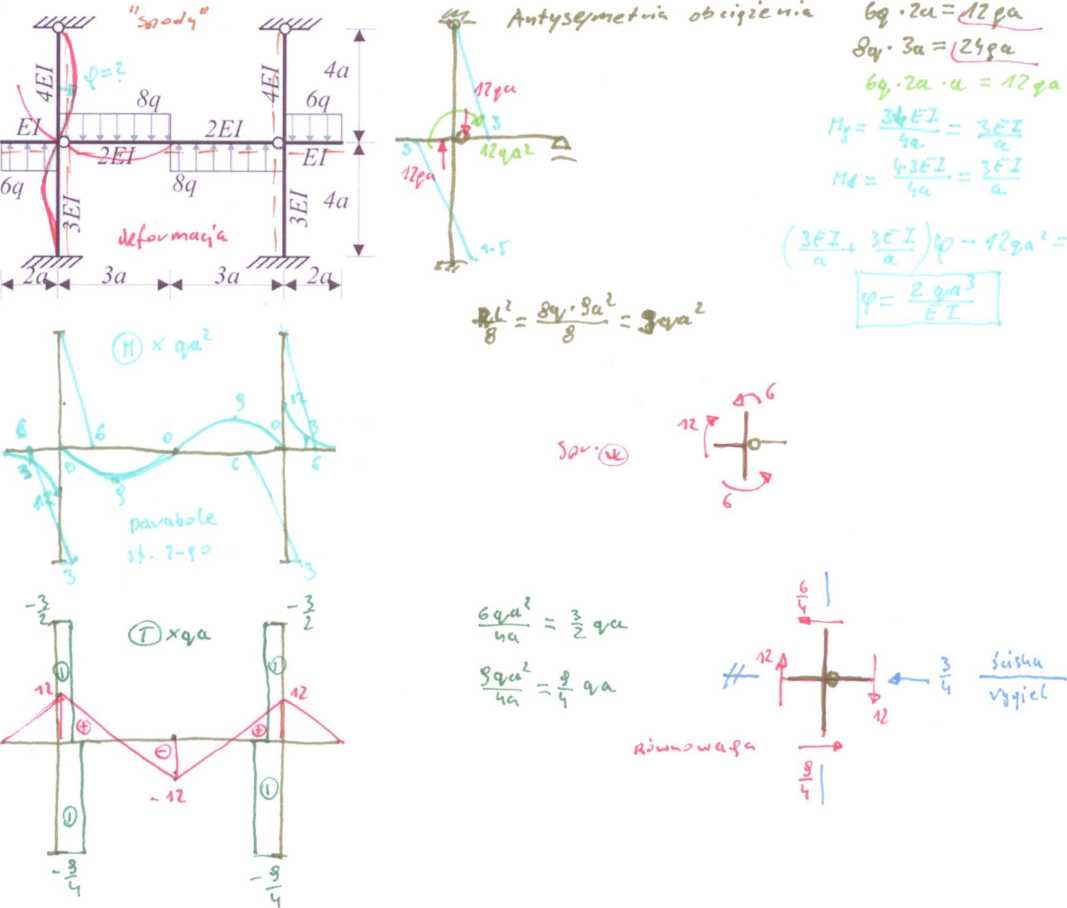 "spody"
4EI
φ=?
4EI
4a
8q
6q
EI
2EI
2EI
EI
6q
8q
3EI
3EI
4a
deformacja
2a
3a
3a
2a
Antysymetria obciążenia
12qa
3
3
12qa²
12qa
1.5
6q·2a = 12qa
8q·3a = 24qa
6q·2a·a = 12qa
= 3·4EI/4a = 3EI/a
= 4·3EI/4a = 3EI/a
(3EI/a + 3EI/a)φ - 12qa² =
φ = 2qa³/EI
/8 = 8q·9a²/8 = 9qa²
M × qa²
6
6
3
12
0
9
0
9
0
12
3
6
6
3
3
parabole
st. 2-go
12
6
6
T × qa
-3/2
-3/2
12
12
+
-
+
-12
-9/4
-9/4
6qa²/4a = 3/2 qa
9qa²/4a = 9/4 qa
6/4
12
12
3/4
ściska
rygiel
Równowaga
9/4